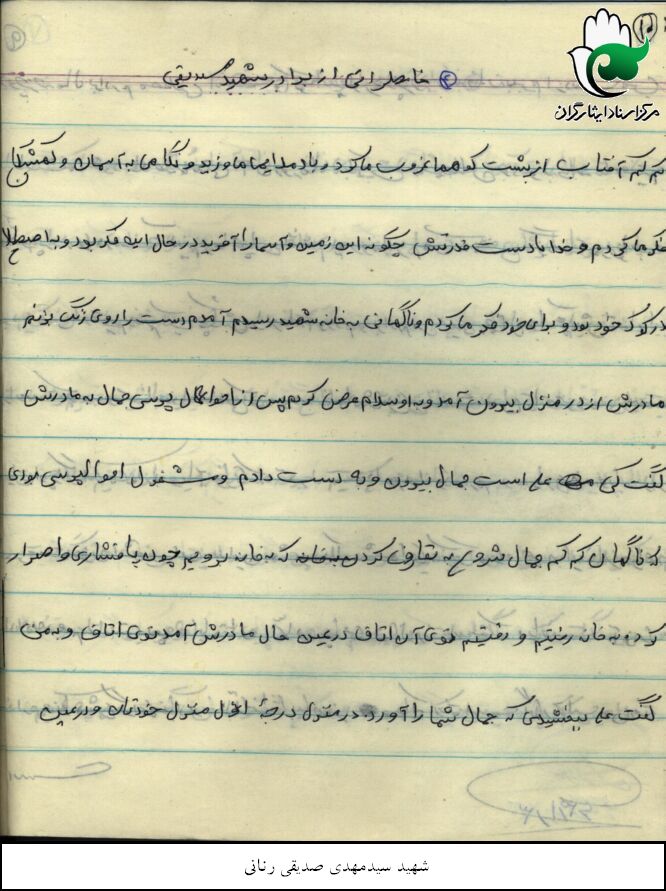 ۱۵
مرکز اسناد ایثارگران
خاطراتی از برادر شهید صدیقی
کم کم آفتاب از پشت کوهها غروب میکرد و باد ملایمی میوزید و نگاهی به آسمان و
فکر میکردم و خدا با دست قدرتش چگونه این زمین و آسمان را آفرید در حال این فکر بود و به اصطلاح
در کوک خود بود و برای خود فکر میکردم و ناگهانی به خانه شهید رسیدم آمدم دست را روی زنگ بزنم
مادرش از در منزل بیرون آمد و به او سلام عرض کردم پس از احوال پرسی جمال به مادرش
گفت کی علی است جمال بیرون و به دست دادم و مشغول احوالپرسی بودی
که ناگهان که کم جمال شروع به تعارف کردن که به خانه برویم چون پافشاری و اصرار
کرد به خانه رفتیم و رفتیم توی آن اتاق در عین حال مادرش آمد توی اتاق و به من
گفت علی ببخشیدی که جمال شما را آورد در منزل درجه اول منزل خودتان و در عین
شهید سیدمهدی صدیقی رنانی